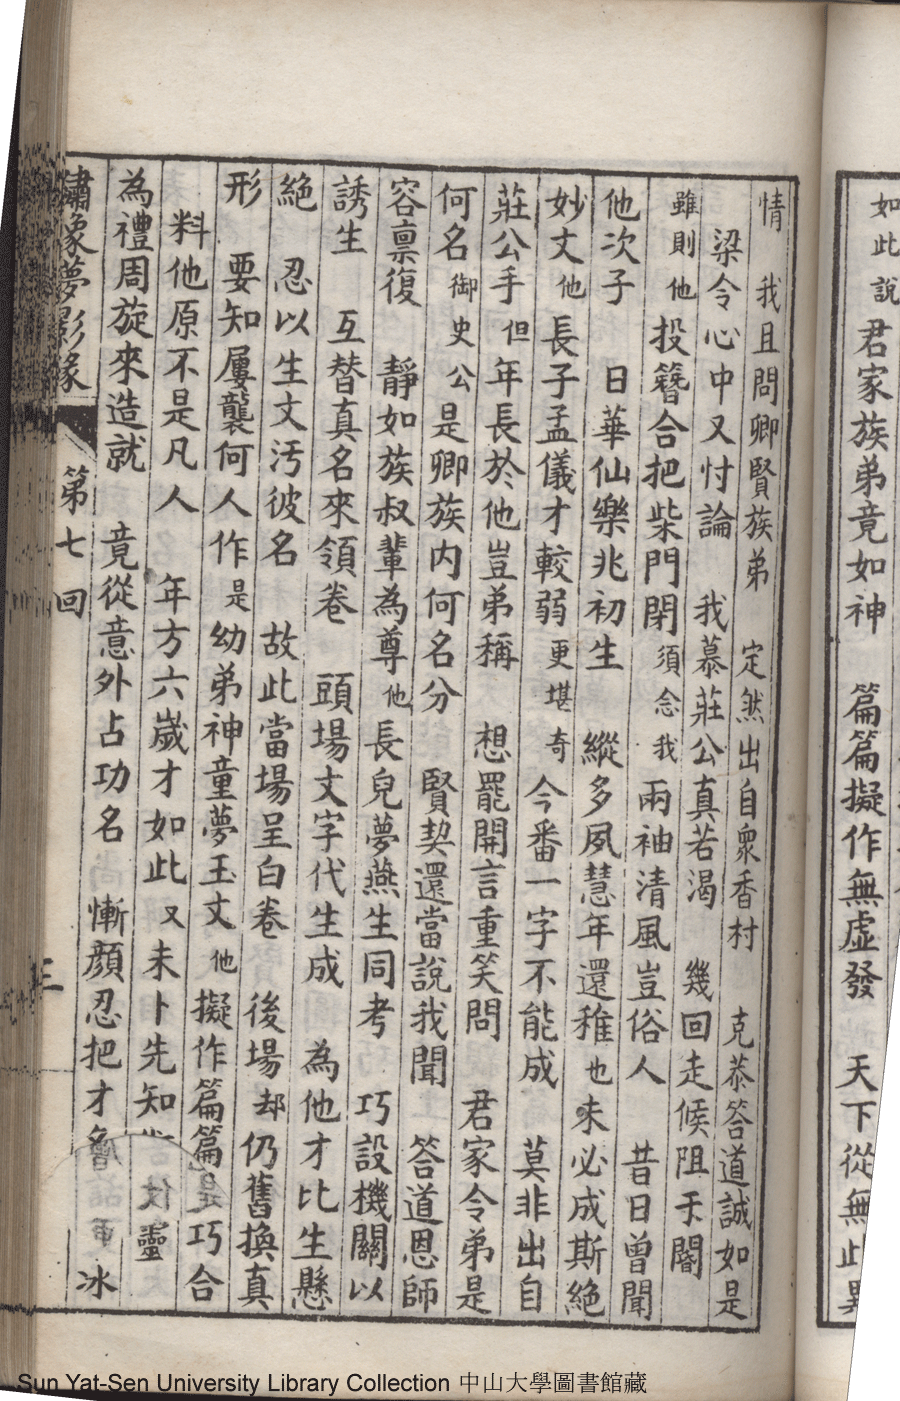 如此說君家族弟竟如神　篇篇擬作無虛發　天下從無此異
情　我且問卿賢族弟　定然出自衆香村　克恭答道誠如是
梁令心中又忖論　我慕莊公真若渴　幾回走候阻于閽
雖則他投簪合把柴門閉須念我兩袖清風豈俗人　昔日曾聞
他次子　日華仙樂兆初生　縱多夙慧年還稚也未必成斯絕
妙文他長子孟儀才較弱更堪奇今番一字不能成　莫非出自
莊公手但年長於他豈弟稱　想罷開言重笑問　君家令弟是
何名御史公是卿族内何名分　賢契還當說我聞　答道恩師
容禀復　靜如族叔輩為尊他長兒夢燕生同考　巧設機關以
誘生　互替真名來領卷　頭場文字代生成　為他才比生懸
絕　忍以生文汚彼名　故此當場呈白卷　後場却仍舊換真
形　要知屢襲何人作是幼弟神童夢玉文他擬作篇篇是巧合
料他原不是凡人　年方六歲才如此又未卜先知靈
為禮周旋來造就　竟從意外占功名　慚顏忍把才冰
繡像夢影緣　第七回　三
Sun Yat-Sen University Library Collection 中山大學圖書館藏